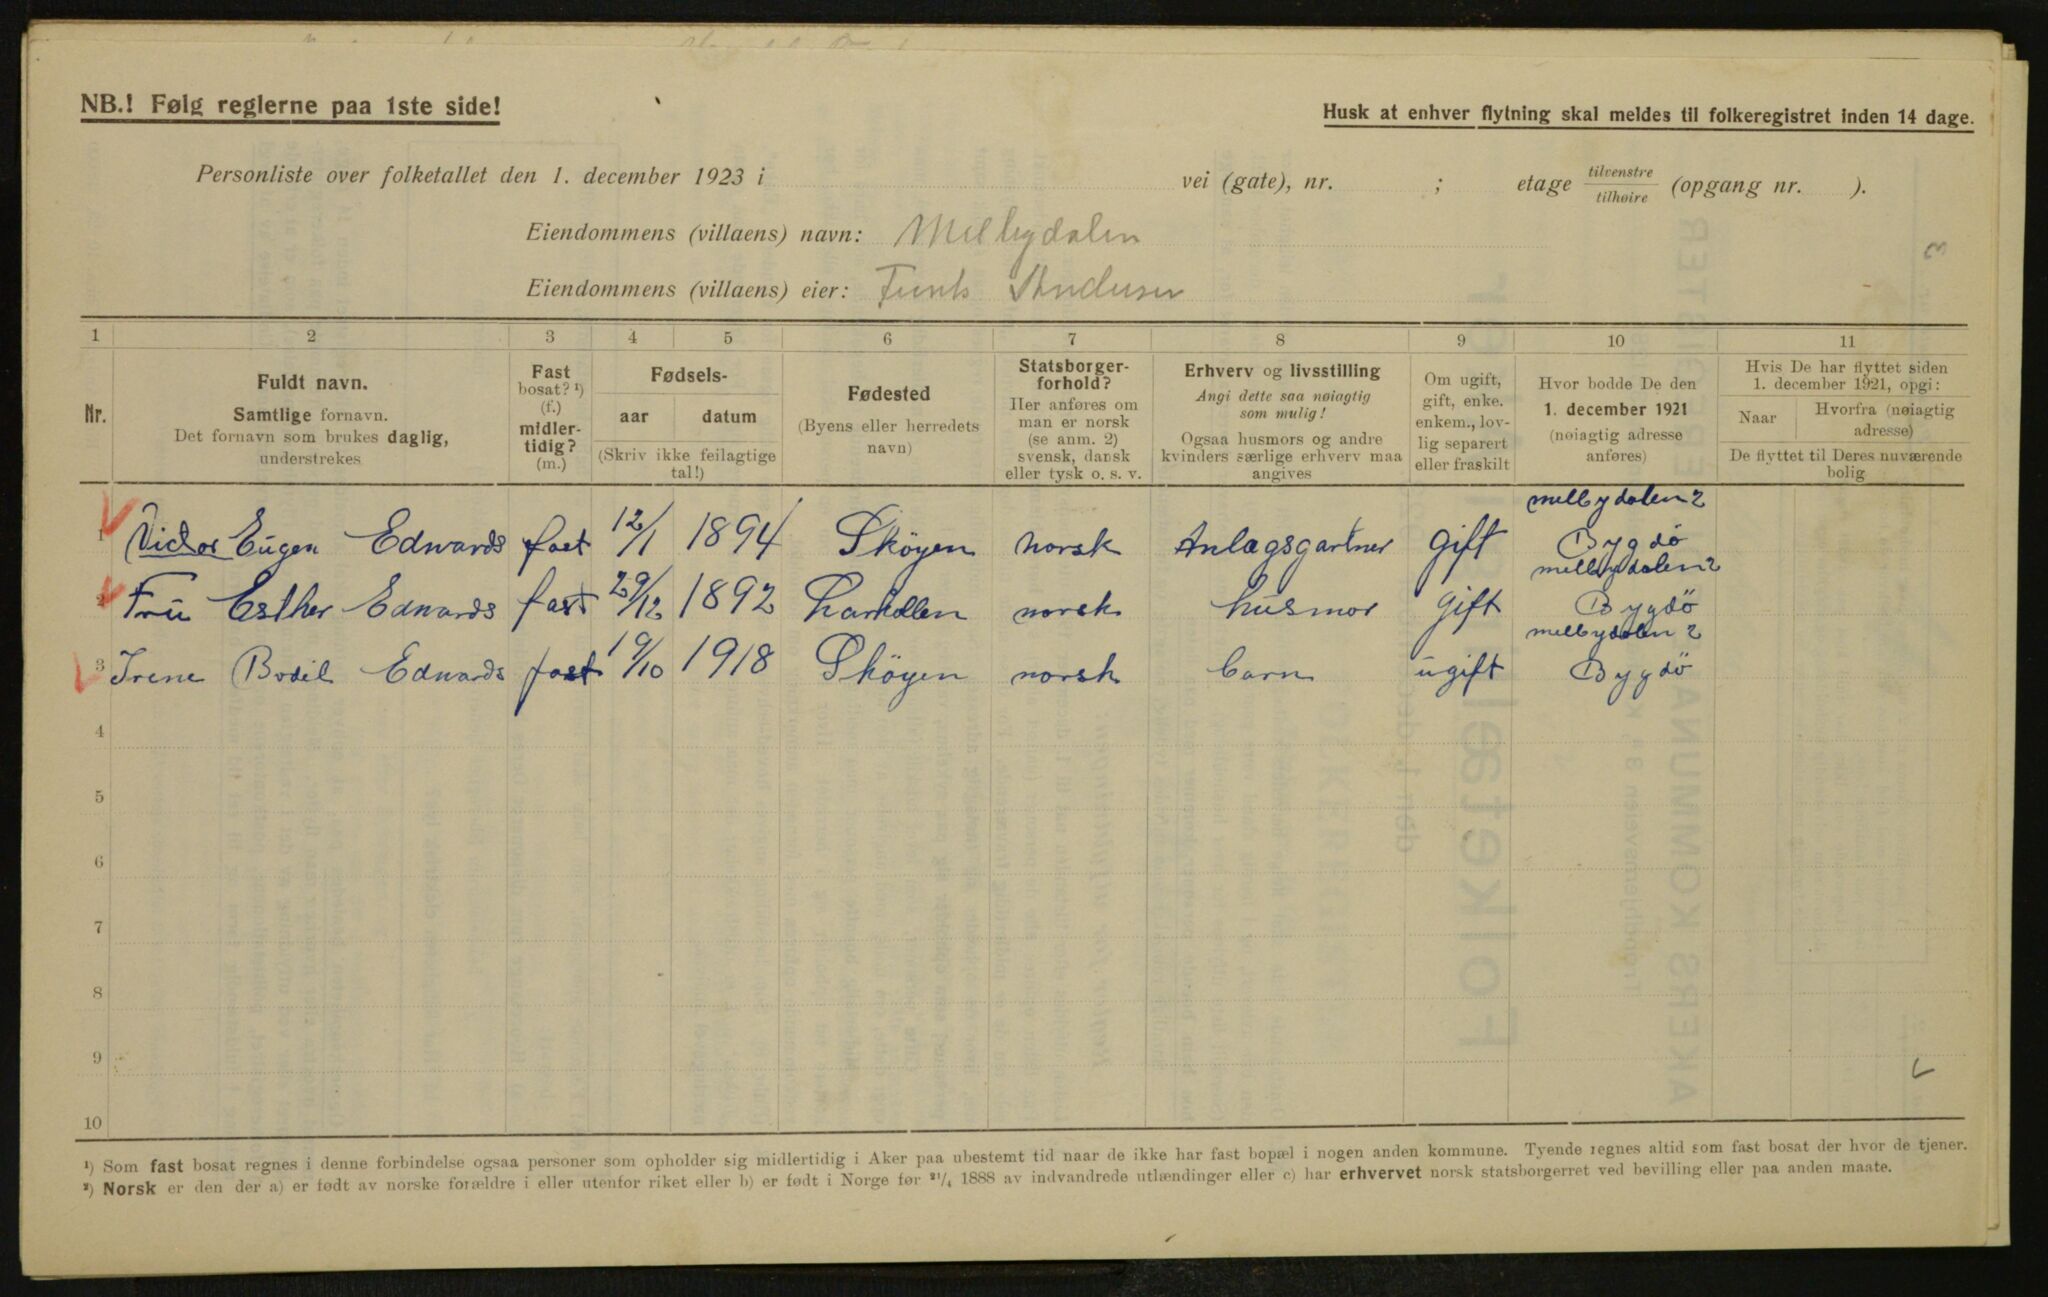 NB.! Følg reglerne paa 1ste side!
Husk at enhver flytning skal meldes til folkeregistret inden 14 dage.
Personliste over folketallet den 1. december 1923 i vei (gate), nr. ; etage tilvenstre/tilhøire (opgang nr. ).
Eiendommens (villaens) navn: Melbydalen
Eiendommens (villaens) eier: Andersen
3
1 2 3 4 5 6 7 8 9 10 11
Nr.
Fuldt navn.
Samtlige fornavn.
Det fornavn som brukes daglig,
understrekes
Fast
bosat? ¹)
(f.)
midler-
tidig?
(m.)
Fødsels-
aar datum
(Skriv ikke feilagtige
tal!)
Fødested
(Byens eller herredets
navn)
Statsborger-
forhold?
Her anføres om
man er norsk
(se anm. 2)
svensk, dansk
eller tysk o. s. v.
Erhverv og livsstilling
Angi dette saa nøiagtig
som mulig!
Ogsaa husmors og andre
kvinders særlige erhverv maa
angives
Om ugift,
gift, enke.
enkem., lov-
lig separert
eller fraskilt
Hvor bodde De den
1. december 1921
(nøiagtig adresse
anføres)
Hvis De har flyttet siden
1. december 1921, opgi:
Naar
Hvorfra (nøiagtig
adresse)
De flyttet til Deres nuværende
bolig
melbydalen 2
1 Victor Eugen Edwards fast 12/1 1894 Sköyen norsk Anlægsgartner gift Bygdö
melbydalen 2
2 Frü Esther Edwards fast 29/12 1892 norsk husmor gift Bygdö
melbydalen 2
3 Irene Bodil Edwards fast 19/10 1918 Sköyen norsk barn ugift Bygdö
4
5
6
7
8
9
10
¹) Som fast bosat regnes i denne forbindelse ogsaa personer som opholder sig midlertidig i Aker paa ubestemt tid naar de ikke har fast bopæl i nogen anden kommune. Tyende regnes altid som fast bosat der hvor de tjener.
²) Norsk er den der a) er født av norske forældre i eller utenfor riket eller b) er født i Norge før ²¹/₄ 1888 av indvandrede utlændinger eller c) har erhvervet norsk statsborgerret ved bevilling eller paa anden maate.